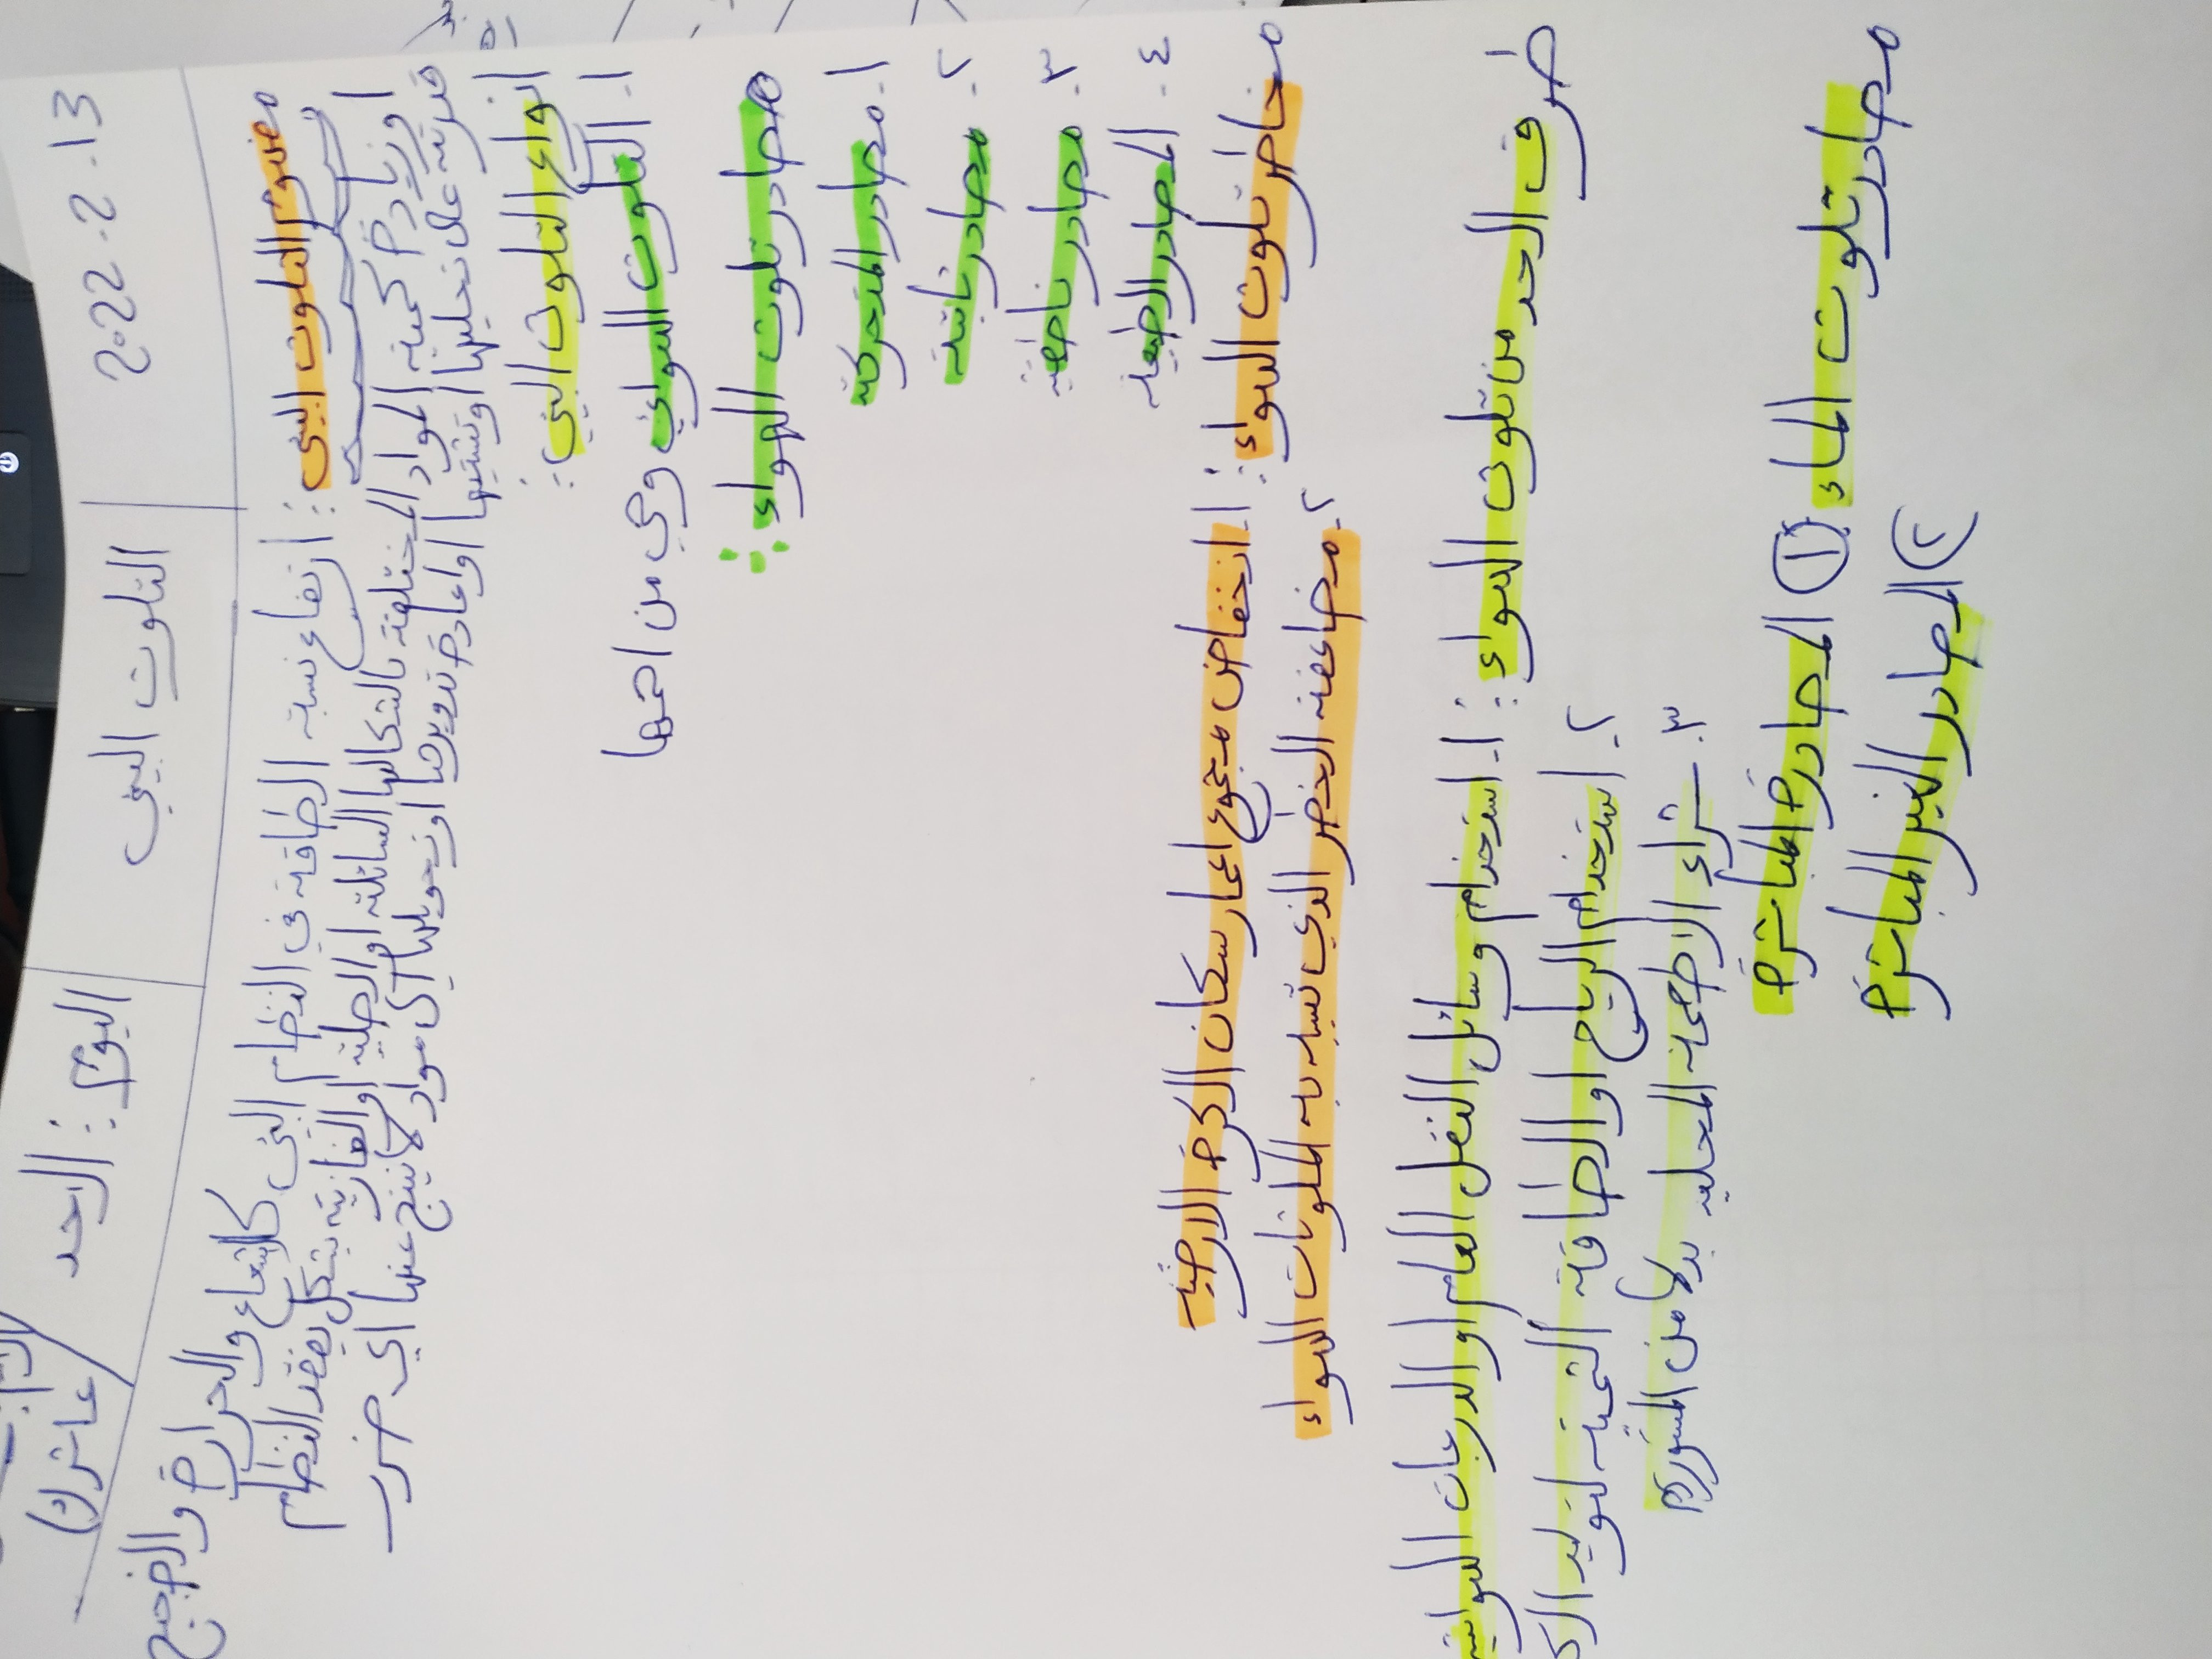 عاشر (ك
اليوم : الاحد
التلوث البيئي
2022.2.13
مفهوم التلوث البيئي : ارتفاع نسبة الطاقة في النظام البيئي كالاشعاع والحرارة والضجيج
او زيادة كمية المواد المختلفة باشكالها السائلة او الصلبة او الغازية بشكل يفقد النظام
قدرته على تحليلها او تشتيتها او اعادة تدويرها او تحويلها الى مواد لا ينتج عنها اي ضرر
انواع التلوث البيئي :
١- التلوث الهوائي وهي من اهمها
مصادر تلوث الهواء :
١- مصادر المتحركة
٢- مصادر ثابتة
٣- مصادر ناطقية
٤- المصادر الطبيعية
مخاطر تلوث الهواء : ١- انخفاض مجموع اعمار سكان الكرة الارضية
٢- مضاعفة الخطر الذي تسببه به الملوثات الهواء
طرق الحد من تلوث الهواء : ١- استخدام وسائل النقل العام او الدرجات الهوائية
٢- استخدام الرياح او الطاقة الشمسية لتوليد
٣- شراء الاطعمة المحلية بدلا من المستوردة
مصادر تلوث الماء ① المصادرة المباشرة
② المصادر الغير المباشرة